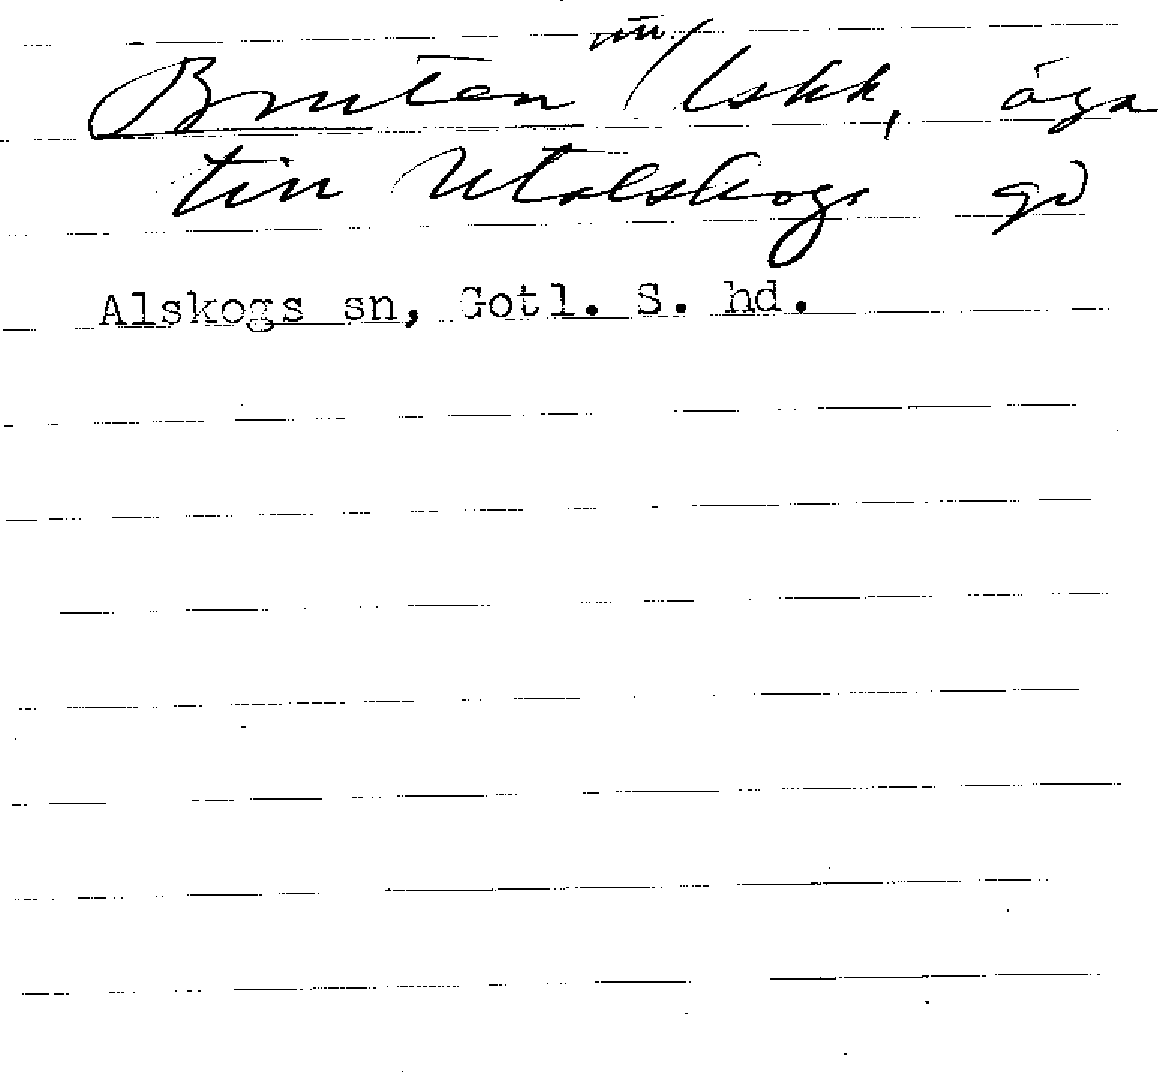 Bruten / äga
till Utalskogs gd
Alskogs sn, Gotl. S. hd.